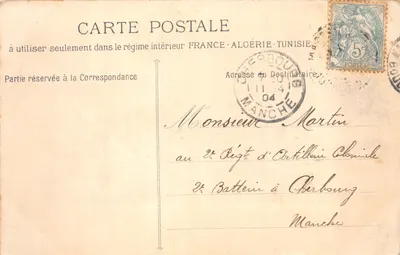 CARTE POSTALE
à utiliser seulement dans le régime intérieur FRANCE - ALGÉRIE - TUNISIE
Partie réservée à la Correspondance
Adresse du Destinataire
CHERBOURG
04
MANCHE
5c
Monsieur Martin
au 2e Régt d'Artillerie Coloniale
2e Batterie à Cherbourg
Manche